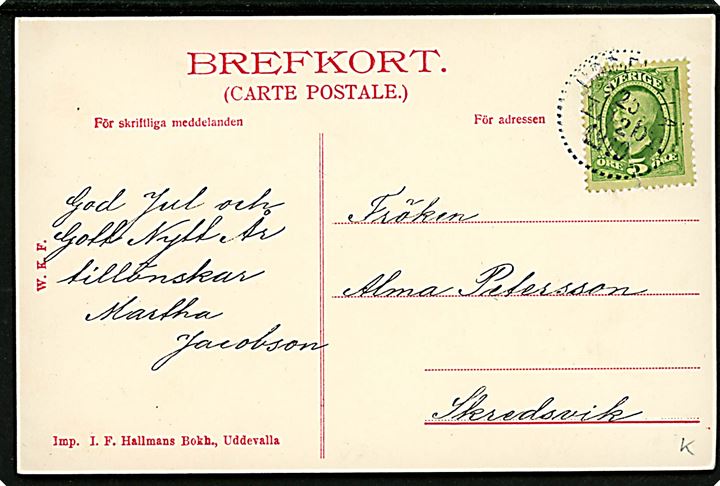 BREFKORT.
(CARTE POSTALE.)
För skriftliga meddelanden
För adressen
SVERIGE
ÖRE 5 ÖRE
God Jul och
Gott Nytt År
tillönskar
Martha
Jacobson
W. K. F.
Fröken
Alma Petersson
Skredsvik
Imp. I. F. Hallmans Bokh., Uddevalla
K